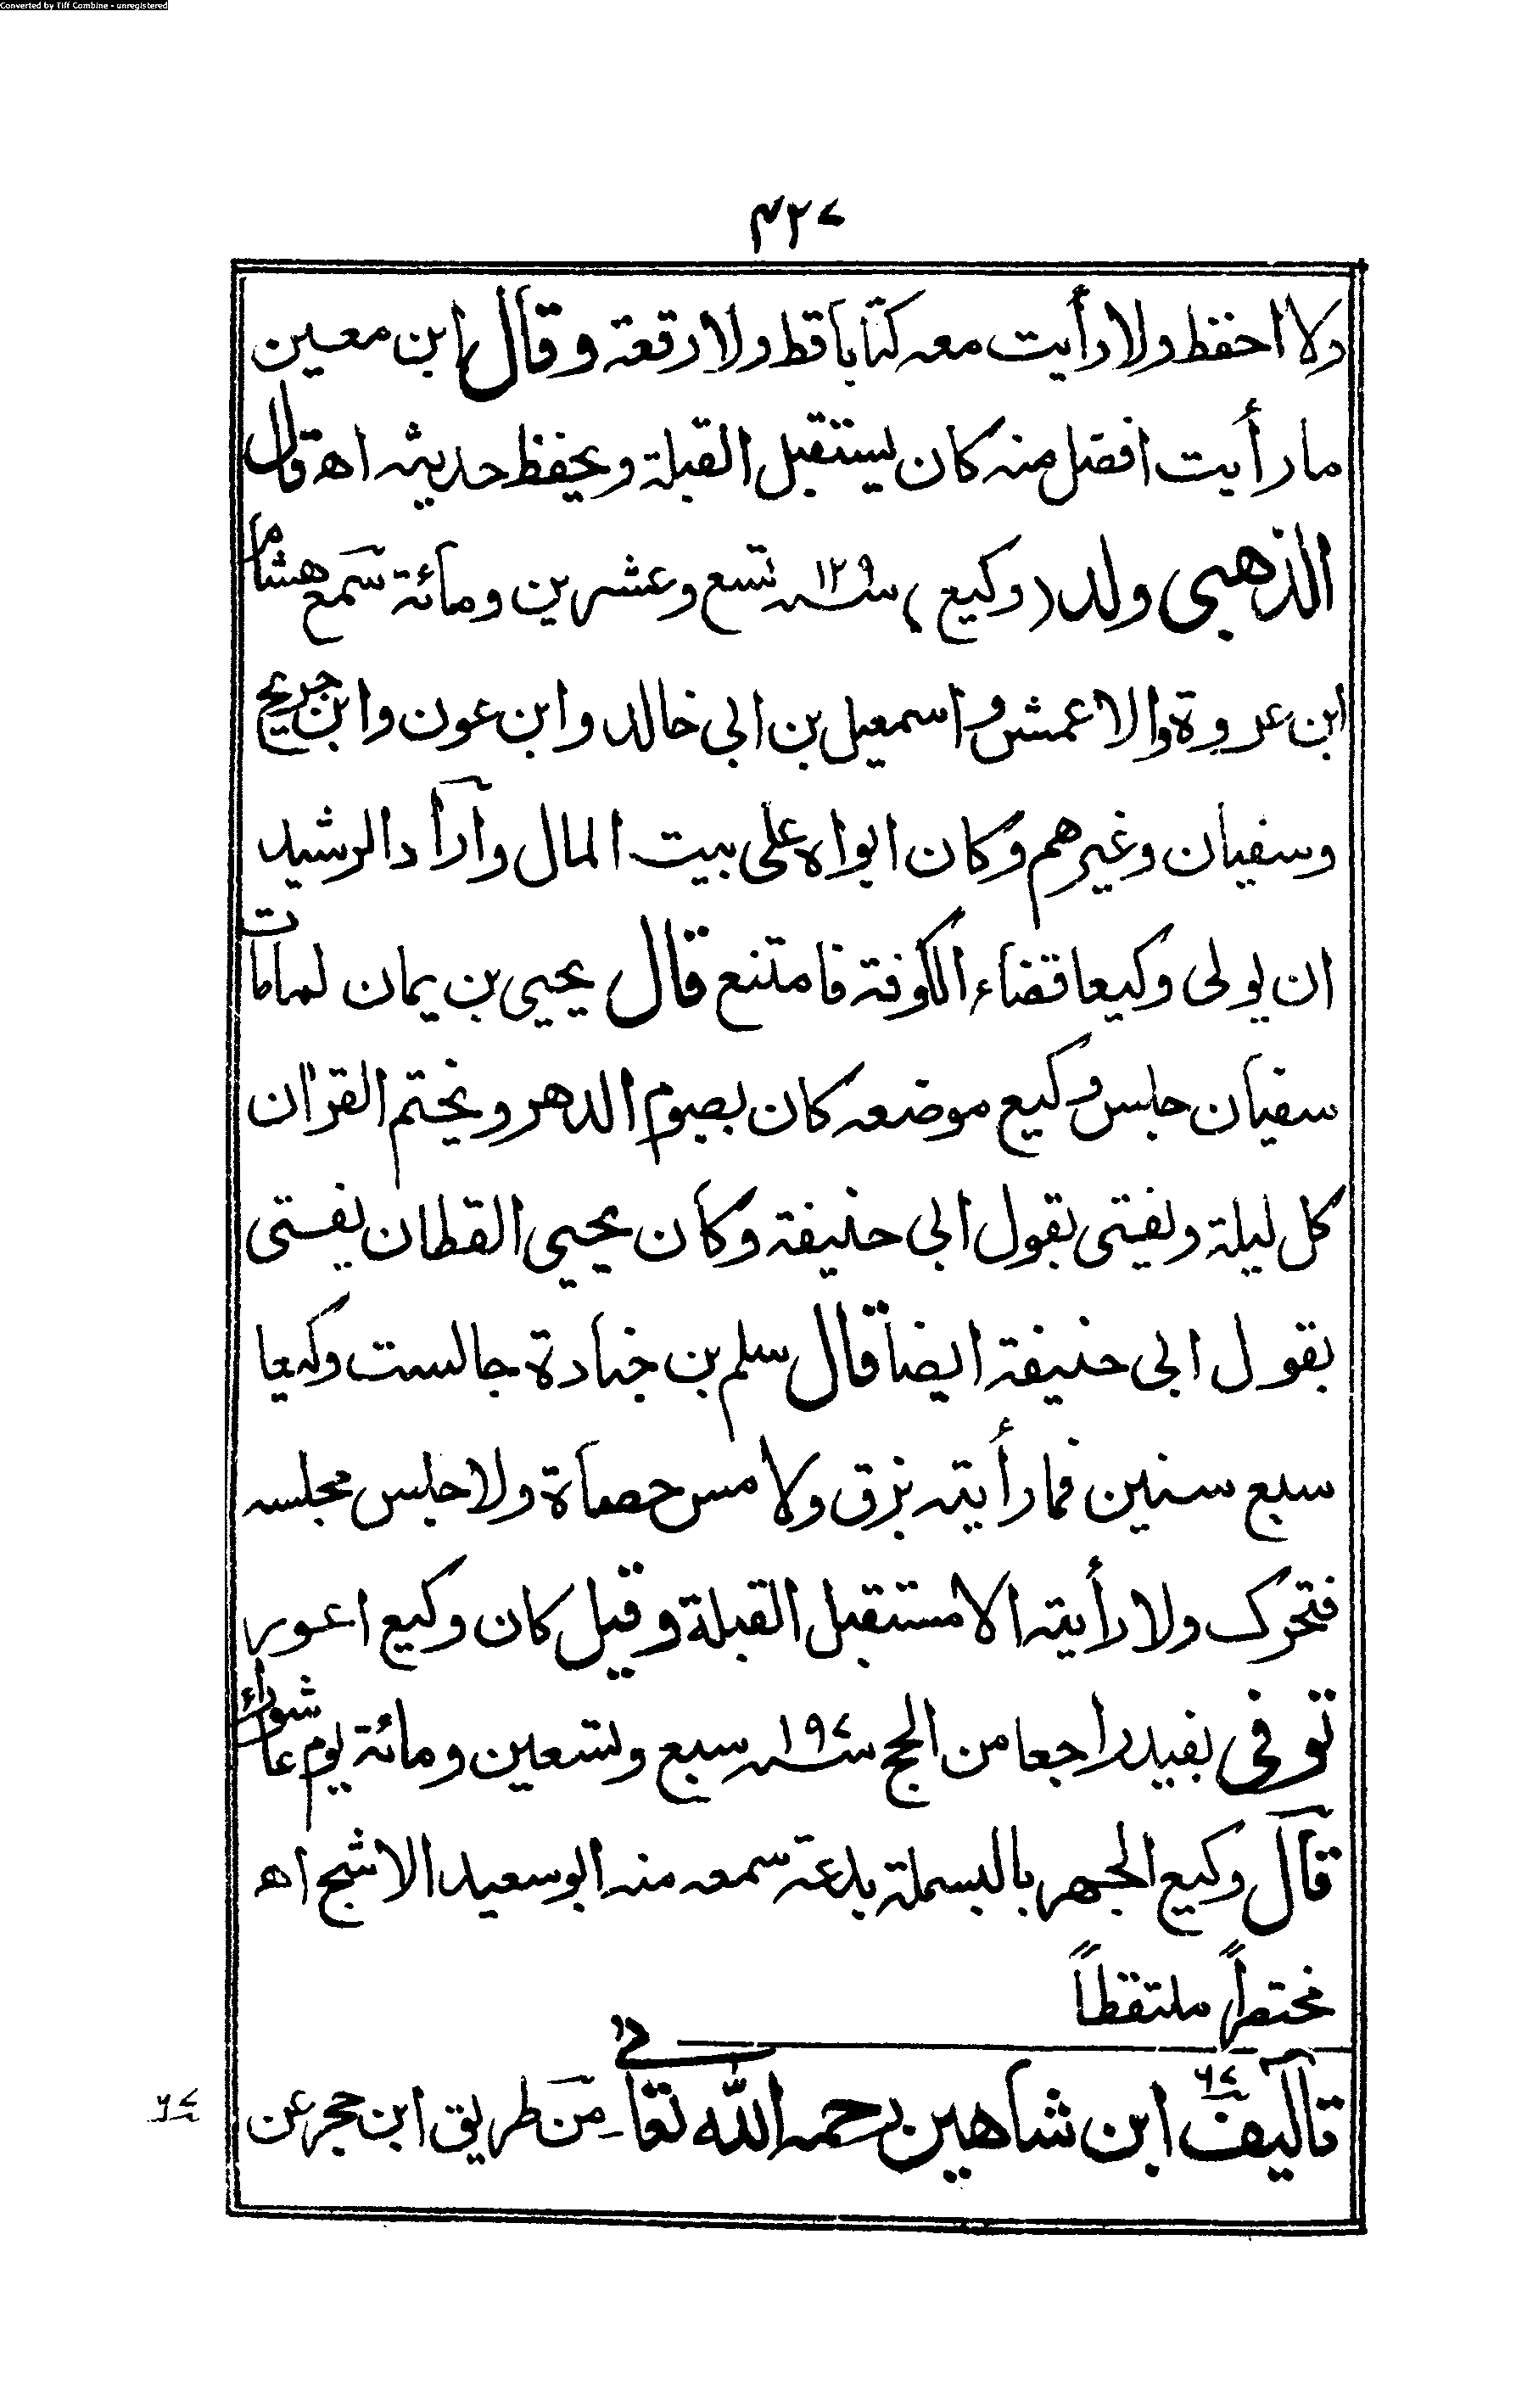 Converted by Tiff Combine - unregistered
۴۲۷
ولا احفظ ولا رأيت معه كتابا قط ولا رقعة وقال ابن معين
ما رأيت افضل منه كان يستقبل القبلة ويحفظ حديثه اه قال
الذهبى ولد (وكيع) سنه ۱۲۹ تسع وعشرين ومائة سمع هشام
ابن عروة والاعمش واسمعيل بن ابى خالد وابن عون وابن جريج
وسفيان وغيرهم وكان ابواه على بيت المال وآراد الرشيد
ان يولى وكيعا قضاء الكوفة فامتنع قال يحيى بن يمان لما مات
سفيان جلس وكيع موضعه كان يصوم الدهر ويختم القران
كل ليلة ويفتى بقول ابى حنيفة وكان يحيى القطان يفتى
بقول ابى حنيفة ايضا قال سلم بن جنادة جالست وكيعا
سبع سنين فما رأيته بزق ولا مس حصاة ولا جلس مجلسه
فتحرك ولا رأيته الا مستقبل القبلة وقيل كان وكيع اعور
توفى بفيد راجعا من الحج سنه ۱۹۷ سبع وتسعين ومائة يوم عاشوراء
قال وكيع الجهر بالبسملة بدعة سمعه منه ابو سعيد الاشج اه
مختصراً ملتقطاً
تآليف ۶۷ ابن شاهين رحمه الله تعالى من طريق ابن حجر عن
۶۷